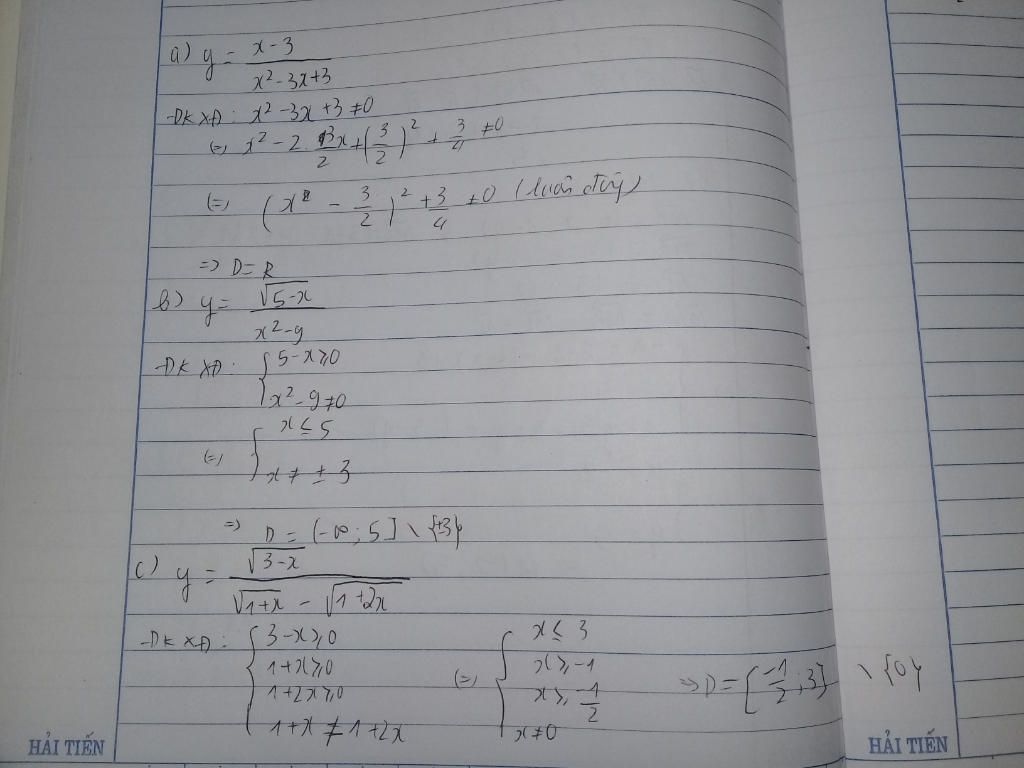 a) y = (x - 3)/(x² - 3x + 3)
ĐKXĐ: x² - 3x + 3 ≠ 0
(=) x² - 2 3/2 x + (3/2)² + 3/4 ≠ 0
(=) (x - 3/2)² + 3/4 ≠ 0 (luôn đúng)
=> D = R
b) y = √(5-x)/(x² - 9)
ĐKXĐ: { 5 - x ≥ 0
x² - 9 ≠ 0
(=) { x ≤ 5
x ≠ ± 3
=> D = (-∞; 5] \ {±3}
c) y = √(3-x)/(√(1+x) - √(1+2x))
ĐKXĐ: { 3 - x ≥ 0 (=) { x ≤ 3
1 + x ≥ 0 x ≥ -1
1 + 2x ≥ 0 x ≥ -1/2 => D = [-1/2; 3] \ {0}
1 + x ≠ 1 + 2x x ≠ 0
HẢI TIẾN HẢI TIẾN